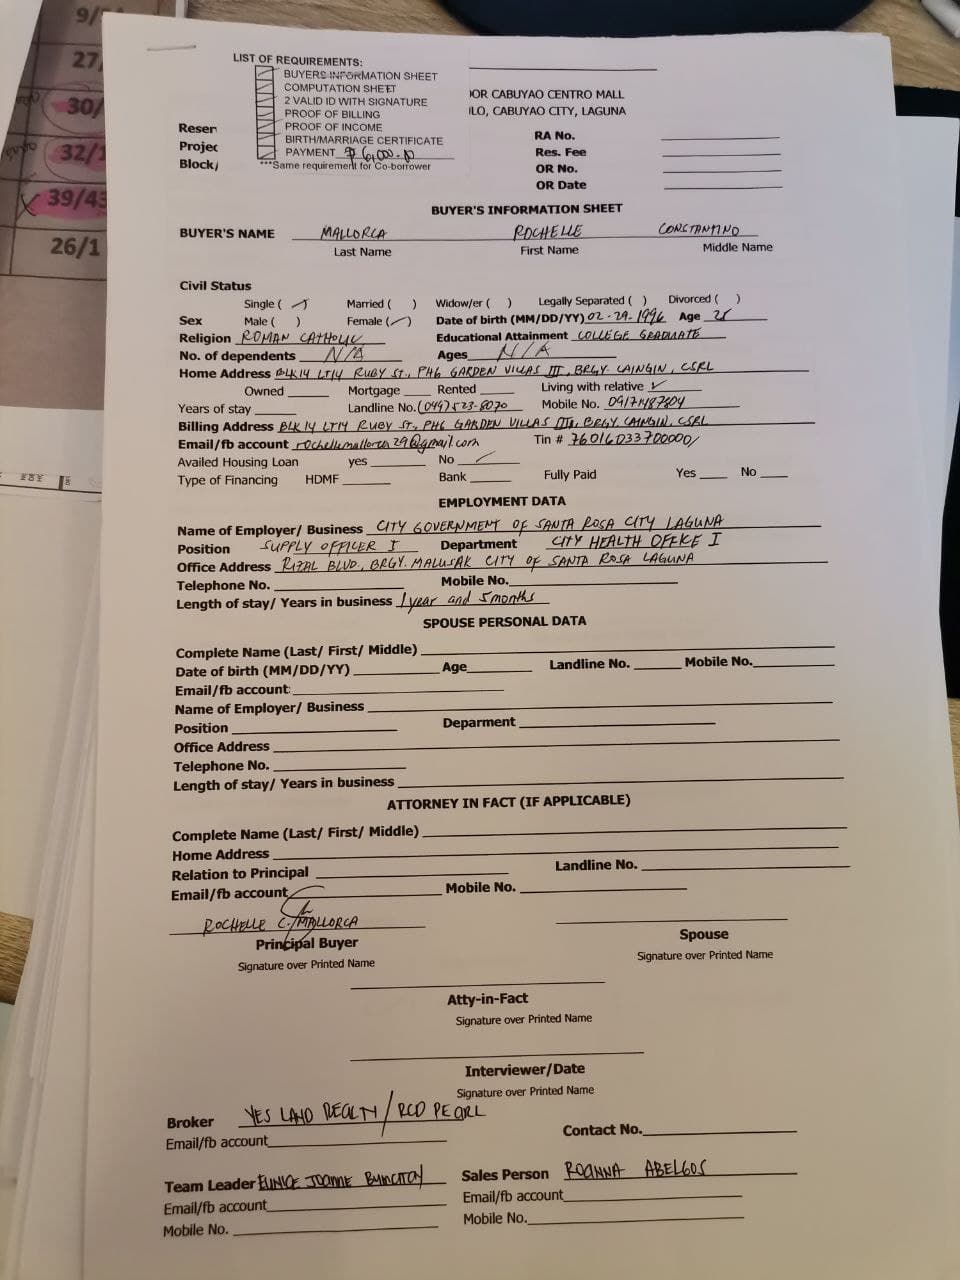 9/
27,
30/
32/1
39/43
26/1
LIST OF REQUIREMENTS:
BUYERS INFORMATION SHEET
COMPUTATION SHEET
2 VALID ID WITH SIGNATURE
PROOF OF BILLING
PROOF OF INCOME
BIRTH/MARRIAGE CERTIFICATE
PAYMENT ₱ 6,000.00
***Same requirement for Co-borrower
OOR CABUYAO CENTRO MALL
LO, CABUYAO CITY, LAGUNA
Reser
Projec
Block/
RA No.
Res. Fee
OR No.
OR Date
BUYER'S INFORMATION SHEET
BUYER'S NAME MALLORCA ROCHELLE CONSTANTINO
Last Name First Name Middle Name
Civil Status
Single ( ✓ ) Married ( ) Widow/er ( ) Legally Separated ( ) Divorced ( )
Sex Male ( ) Female ( ✓ ) Date of birth (MM/DD/YY) 02-29-1996 Age 25
Religion ROMAN CATHOLIC Educational Attainment COLLEGE GRADUATE
No. of dependents N/A Ages N/A
Home Address BLK14 LT14 RUBY ST., PH6 GARDEN VILLAS III, BRGY. CAINGIN, CSRL
Owned Mortgage Rented Living with relative ✓
Years of stay Landline No. (049) 523-8070 Mobile No. 09171487804
Billing Address BLK 14 LT14 RUBY ST., PH6 GARDEN VILLAS III, BRGY CAINGIN, CSRL
Email/fb account rochellmallorca29@gmail.com Tin # 76016033700000/
Availed Housing Loan yes No ✓
Type of Financing HDMF Bank Fully Paid Yes No
EMPLOYMENT DATA
Name of Employer/ Business CITY GOVERNMENT OF SANTA ROSA CITY LAGUNA
Position SUPPLY OFFICER I Department CITY HEALTH OFFICE I
Office Address RIZAL BLVD., BRGY. MALUSAK CITY OF SANTA ROSA LAGUNA
Telephone No. Mobile No.
Length of stay/ Years in business 1 year and 5 months
SPOUSE PERSONAL DATA
Complete Name (Last/ First/ Middle)
Date of birth (MM/DD/YY) Age Landline No. Mobile No.
Email/fb account:
Name of Employer/ Business
Position Deparment
Office Address
Telephone No.
Length of stay/ Years in business
ATTORNEY IN FACT (IF APPLICABLE)
Complete Name (Last/ First/ Middle)
Home Address
Relation to Principal Landline No.
Email/fb account Mobile No.
ROCHELLE C. MALLORCA
Principal Buyer Spouse
Signature over Printed Name Signature over Printed Name
Atty-in-Fact
Signature over Printed Name
Interviewer/Date
Signature over Printed Name
Broker YES LAND REALTY / RCD PEARL
Email/fb account Contact No.
Team Leader EUNICE JOANNE Sales Person ROANNA ABELGOS
Email/fb account Email/fb account
Mobile No. Mobile No.